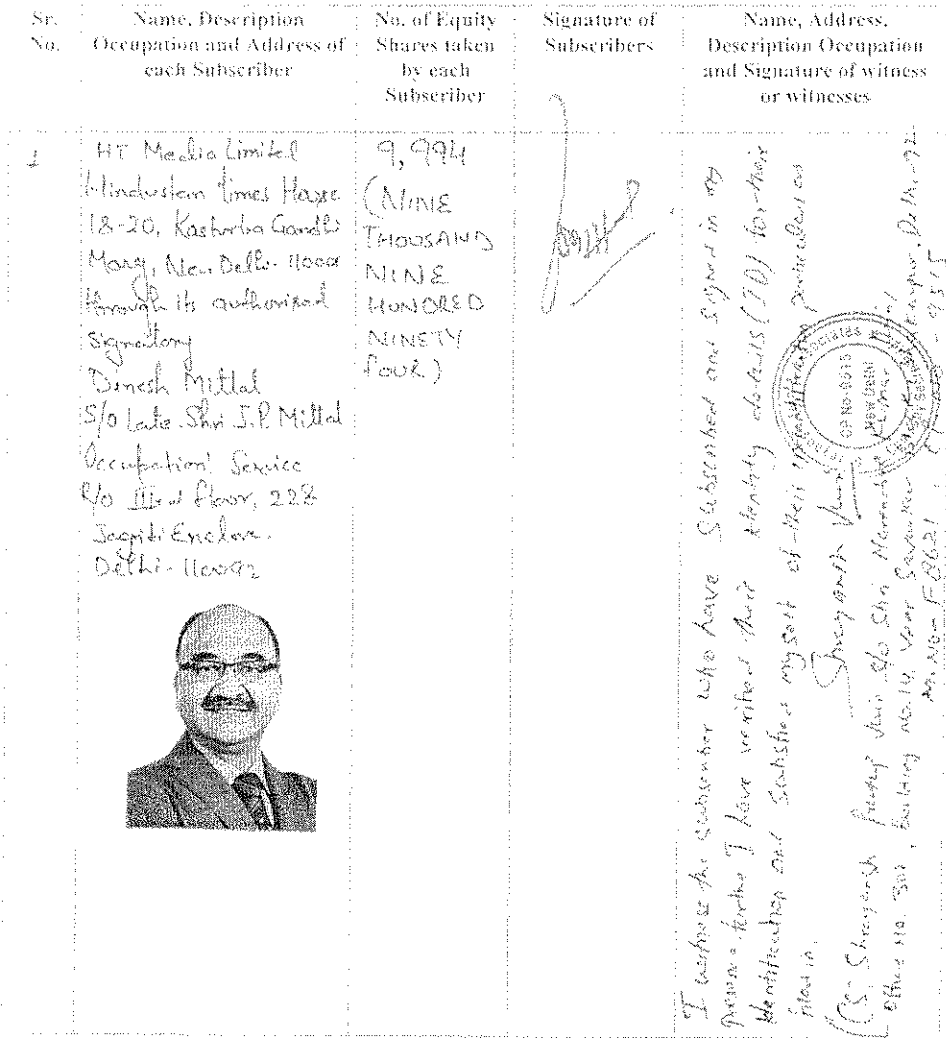 Sr.
No.
Name, Description
Occupation and Address of
each Subscriber
No. of Equity
Shares taken
by each
Subscriber
Signature of
Subscribers
Name, Address,
Description Occupation
and Signature of witness
or witnesses
1
HT Media Limited
Hindustan Times House
18-20, Kasturba Gandhi
Marg, New Delhi- 110001
through its authorised
Signatory
Dinesh Mittal
S/o Late Shri J.P. Mittal
Occupation: Service
R/o floor, 228
Jagriti Enclave.
Delhi- 110092
9,994
(NINE
THOUSAND
NINE
HUNDRED
NINETY
FOUR)
I witness the subscriber who have Subscribed and Signed in my
presence further I have verified their Identity details (ID) for their
Identification and Satisfied myself of their identification particulars as
filled in.
(CS Shreyansh Jain S/o Shri
Office No. 301, building No. 14, Veer Savarkar Block, Delhi-92
M. No- F8621
CP NO. 9515
NEW DELHI